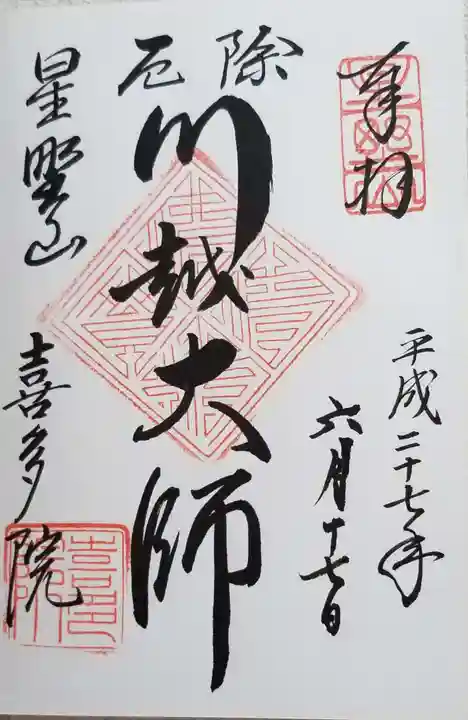 奉拝
平成二十七年
六月十七日
除厄
川越大師
星野山
喜多院